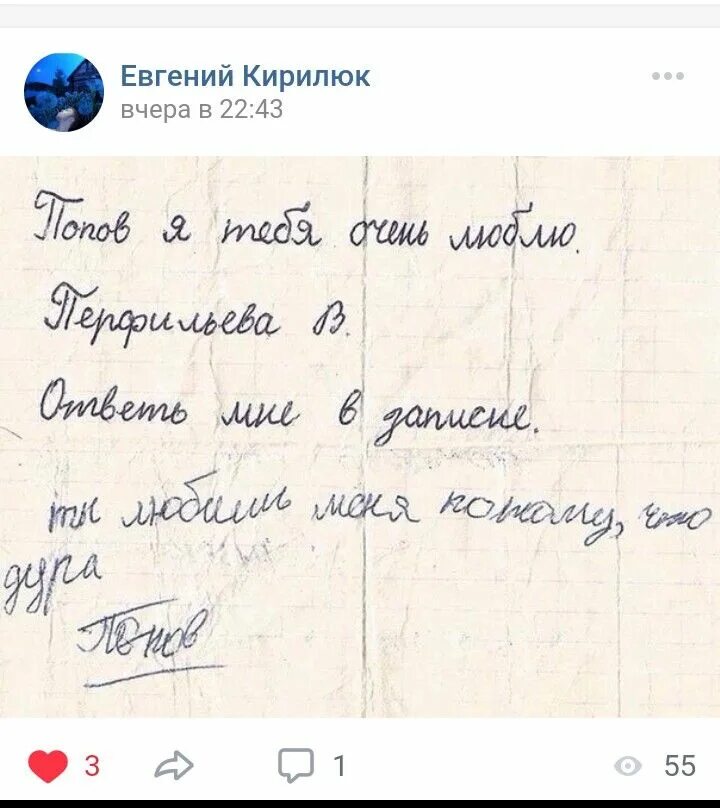 Евгений Кирилюк
вчера в 22:43
Попов я тебя очень люблю.
Перфильева В.
Ответь мне в записке.
ты любишь меня потому, что
дура
Попов
3
1
55